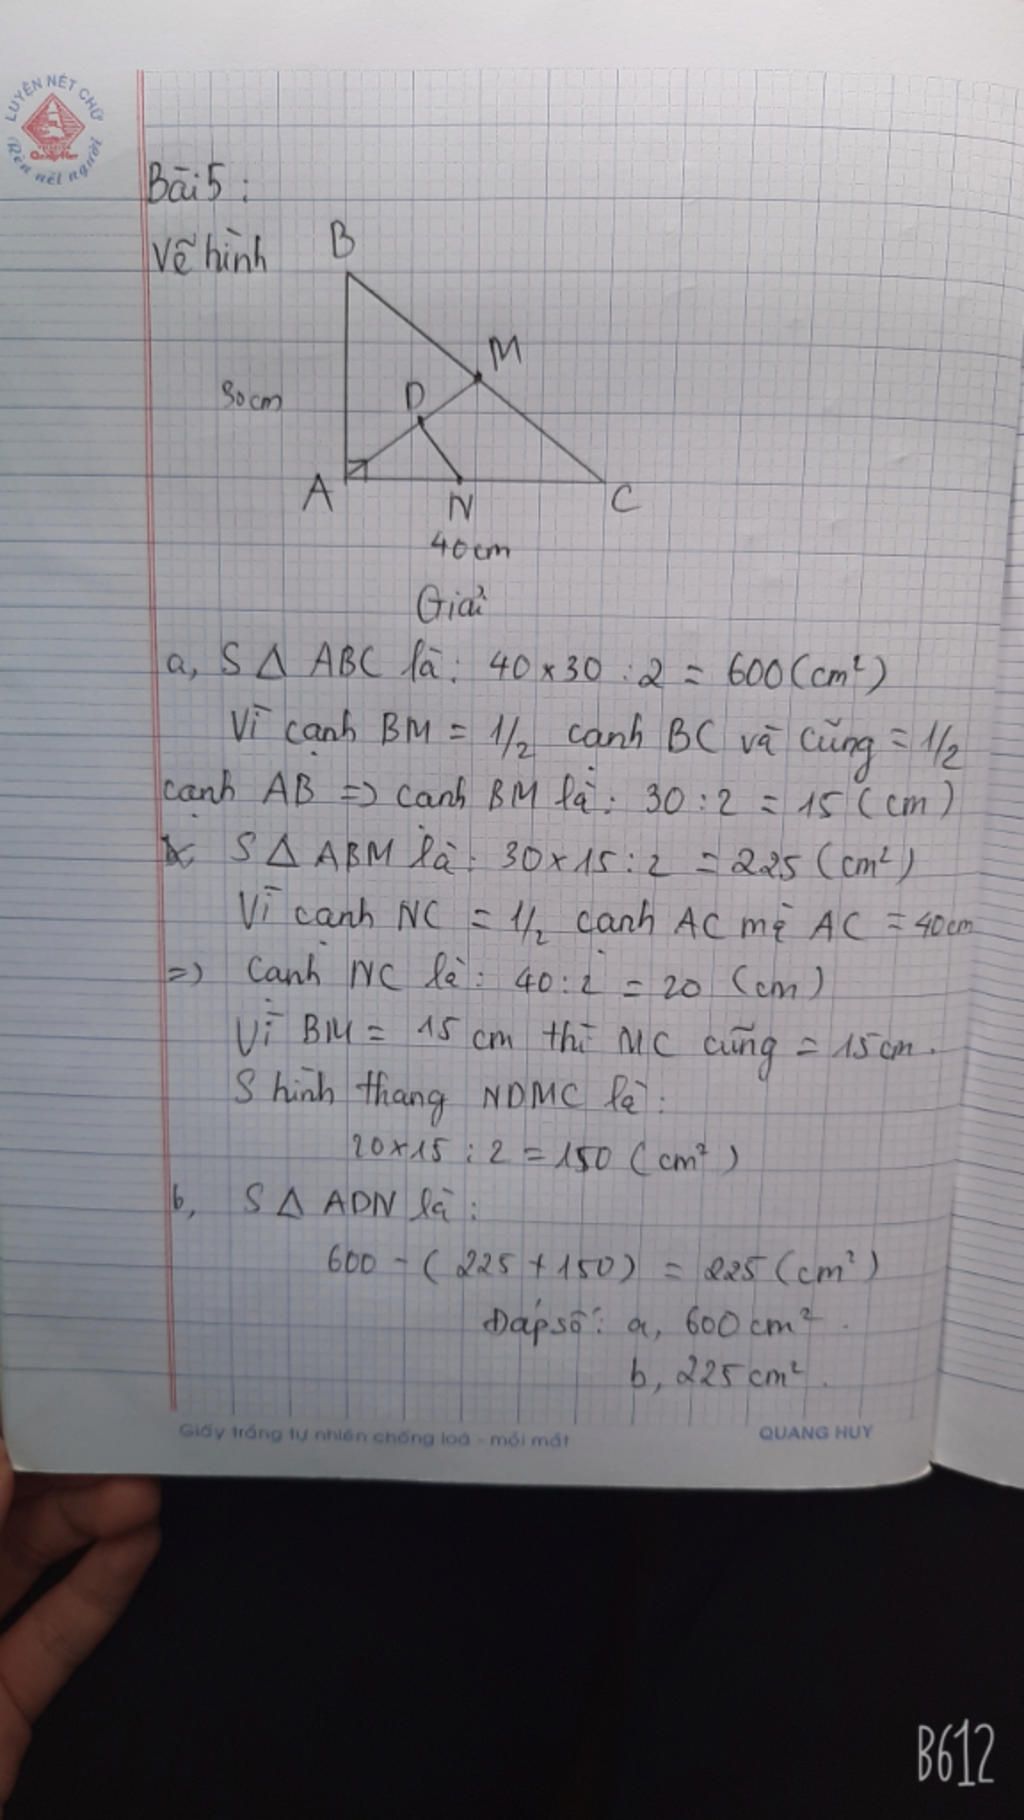 LUYỆN NÉT CHỮ
Rèn nết người
Bài 5 :
Vẽ hình
B
M
D
30cm
A
N
C
40cm
Giải
a, S Δ ABC là : 40 x 30 : 2 = 600 (cm²)
Vì cạnh BM = 1/2 cạnh BC và cũng = 1/2
cạnh AB => cạnh BM là : 30 : 2 = 15 (cm)
S Δ ABM là : 30 x 15 : 2 = 225 (cm²)
Vì cạnh NC = 1/2 cạnh AC mà AC = 40cm
=> Cạnh NC là : 40 : 2 = 20 (cm)
Vì BM = 15 cm thì MC cũng = 15cm .
S hình thang NDMC là :
20 x 15 : 2 = 150 (cm²)
b, S Δ ADN là :
600 - ( 225 + 150 ) = 225 (cm²)
Đáp số : a, 600 cm² .
b, 225 cm² .
Giấy trắng tự nhiên chống loá - mỏi mắt
QUANG HUY
B612